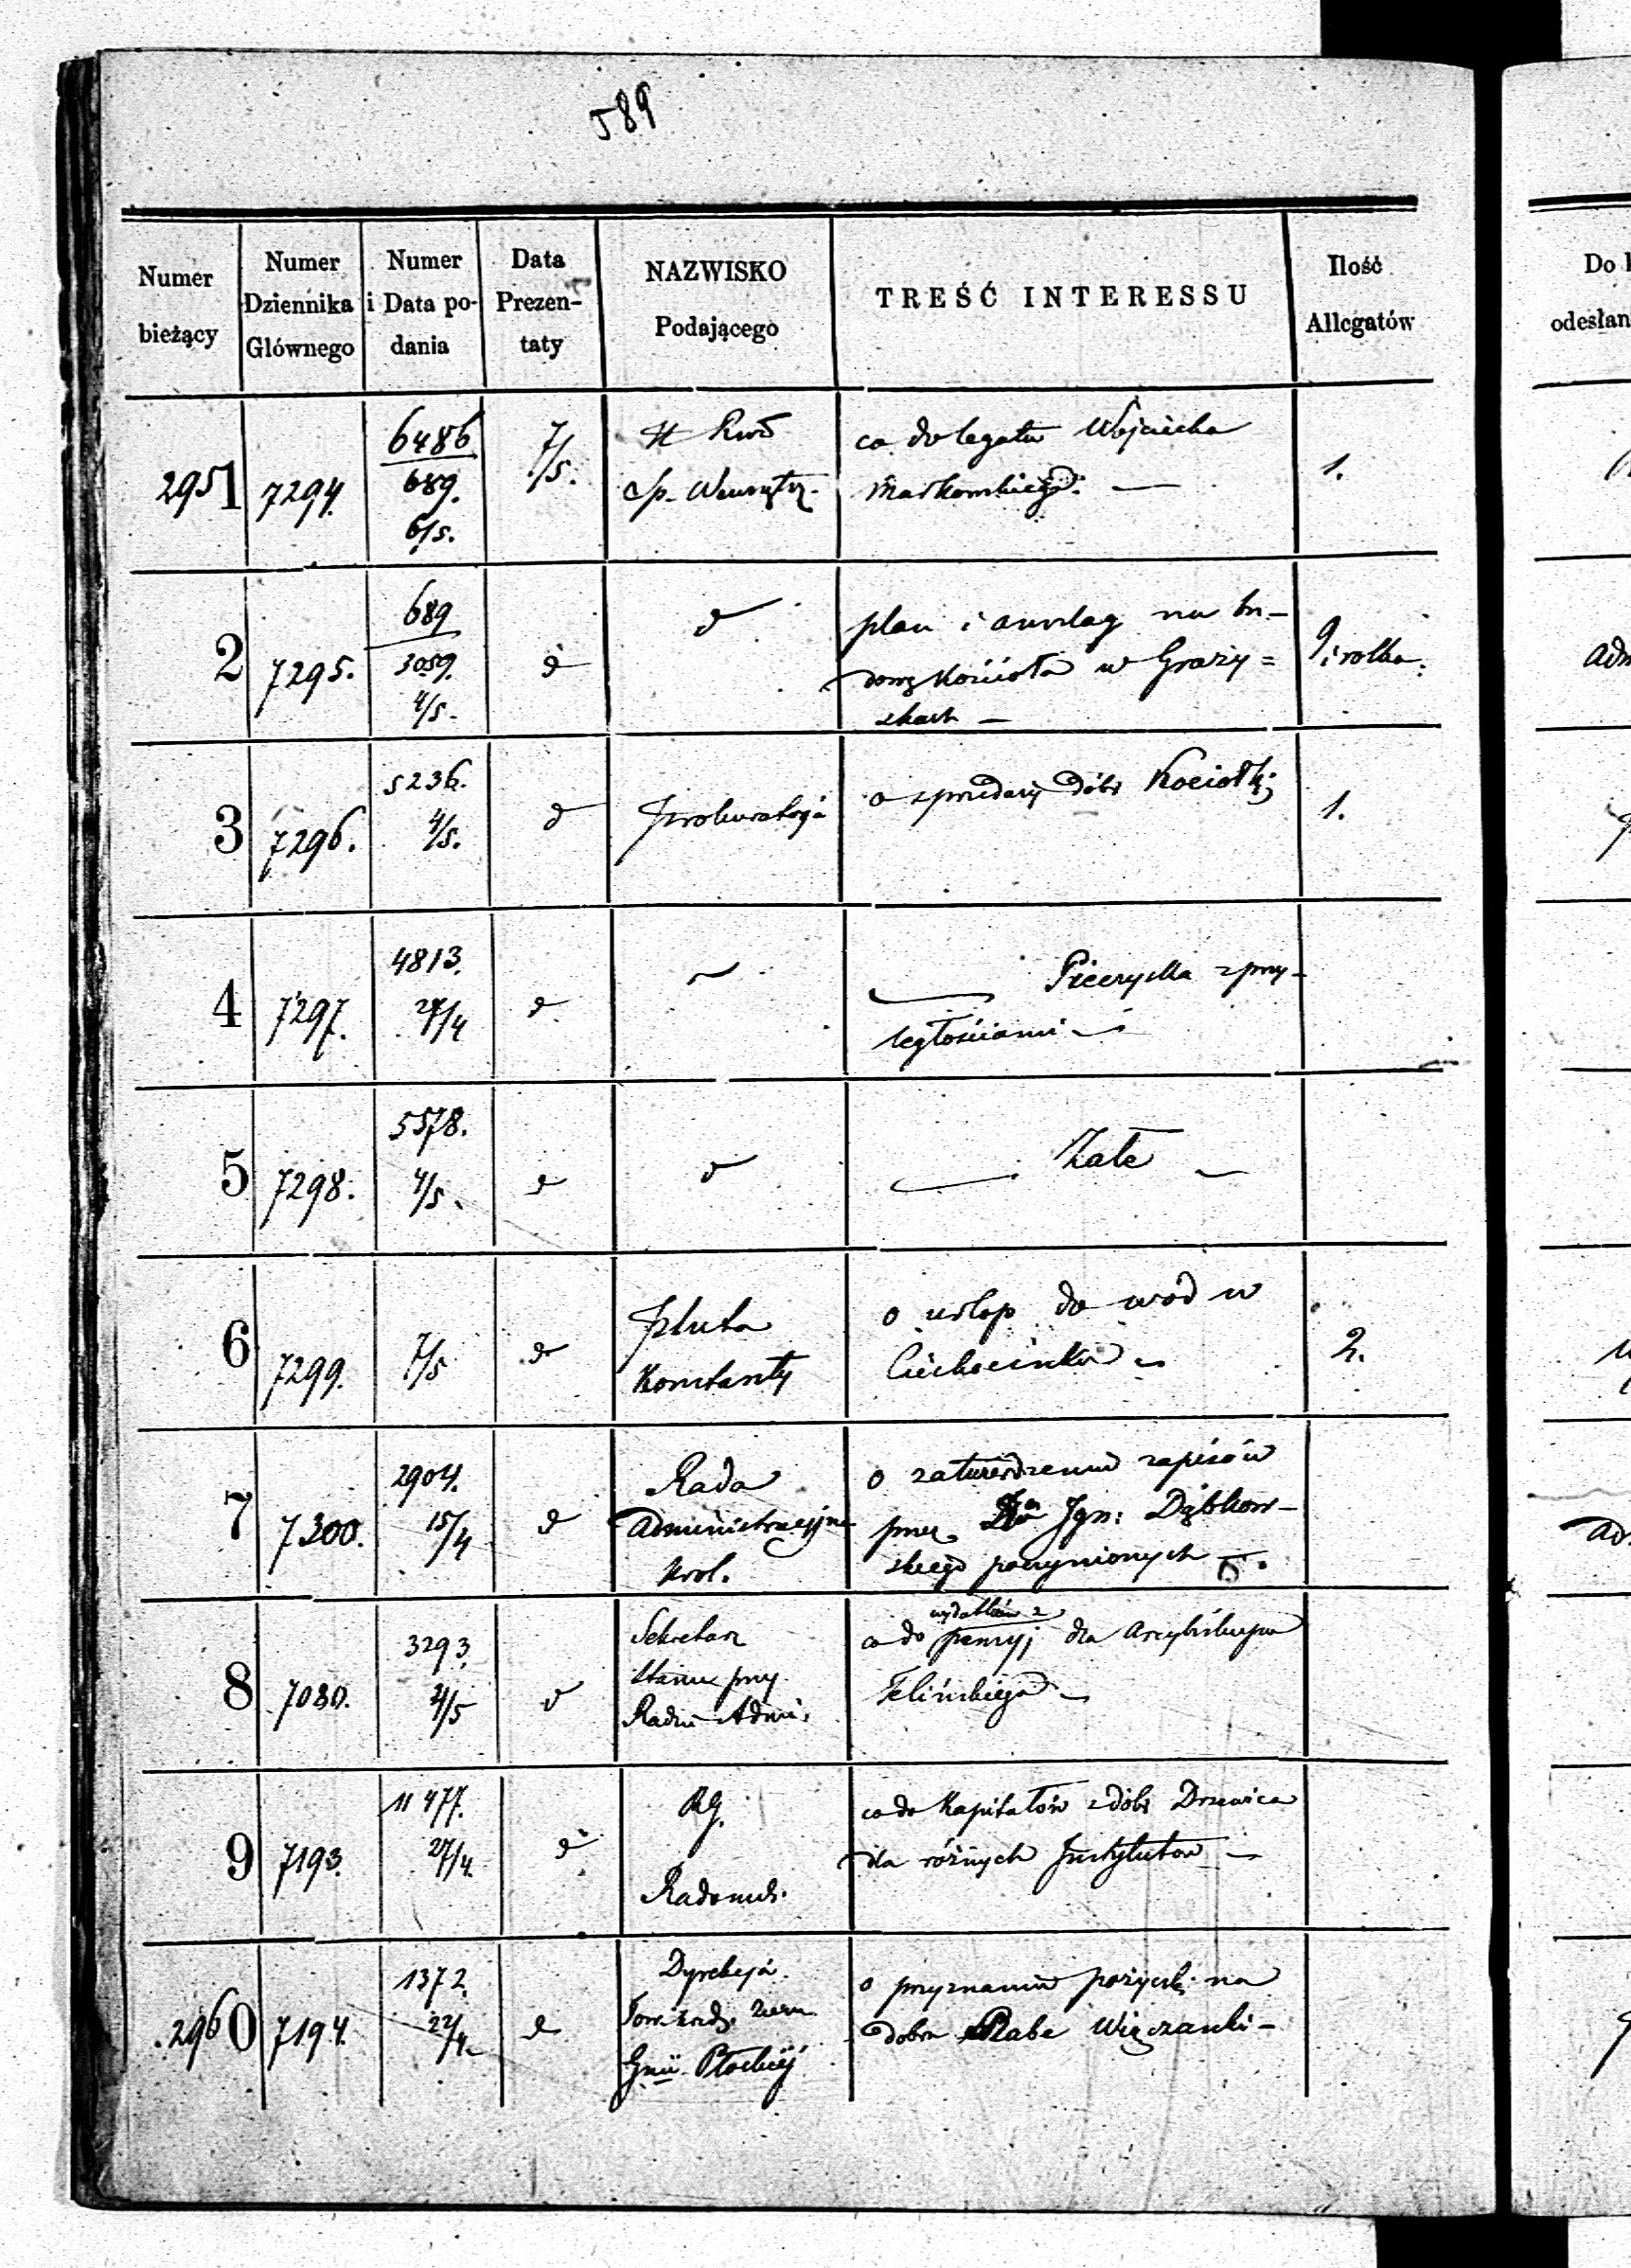 589
Numer bieżący
Numer Dziennika Głównego
Numer i Data podania
Data Prezentaty
NAZWISKO Podającego
TREŚĆ INTERESSU
Ilość Allegatów
2951 7294. 6486 689. 6/5. 7/5. Sp. Wewnętrz. co do legatu Wojciecha 1.
2 7295. 689 3059. 4/5. d d plan i anszlag na bu-
dowę Kościoła w Graży=
szkach — 9 i rolka.
3 7296. 5236. 4/5. d Prokuratorja o sprzedaży dóbr Kociołki 1.
4 7297. 4813. 27/4 d — Piecryska z przy-
ległościami —
5 7298. 5578. 4/5. d d — Żale —
6 7299. 7/5 d Pluta
Konstanty
o urlop do wód w
Ciechocinku — 2.
7 7300. 2904. 15/4 d Rada
Administracyjna
Król.
o zatwierdzeniu zapisów
przez Ign: Dąbkow-
skiego poczynionych —
8 7080. 3293. 4/5 d Sekretarz
Stanu przy
Radzie Admi.
wydatków z
co do pensyj dla Arcybiskupa
Felińskiego —
9 7193. 11477. 27/4. d RG.
Radoms.
co do Kapitałów z dóbr Drzewica
dla różnych Instytutów —
2960 7194. 1372. 22/4. d Dyrekcja
Tow. kredy. Ziem.
Gnii Płockiej
o przyznaniu pożyczki na
dobra Rabe Więczanki —
Do
odesłan